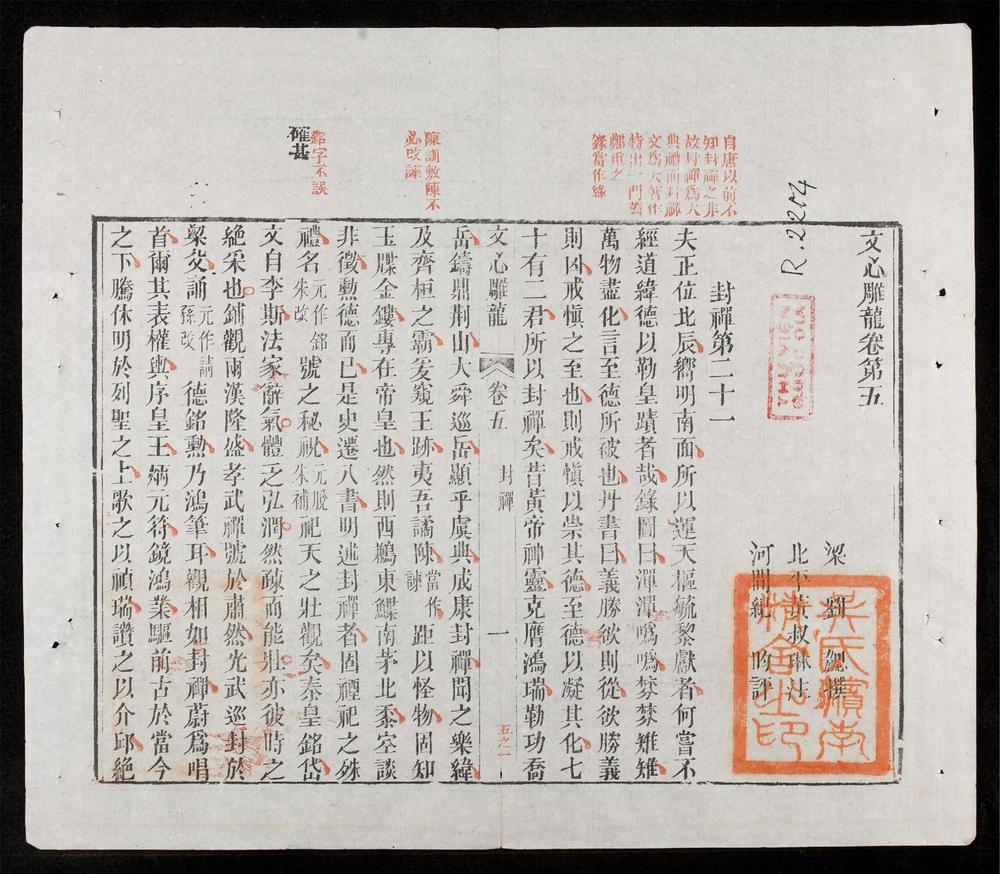 文心雕龍卷第五
梁劉勰撰
北平黃叔琳注
河間紀昀評
R.2204
封禪第二十一
自唐以前不
知封禪之非
故封禪爲大
典禮而封禪
文爲大著作
特出一門蓋
鄭重之
錄當作綠
夫正位北辰嚮明南面所以運天樞毓黎獻者何嘗不
經道緯德以勒皇蹟者哉錄圖曰潬潬噅噅棼棼雉雉
萬物盡化言至德所被也丹書曰義勝欲則從欲勝義
則凶戒愼之至也則戒愼以崇其德至德以凝其化七
十有二君所以封禪矣昔黃帝神靈克膺鴻瑞勒功喬
文心雕龍 卷五 封禪 一 五之一
岳鑄鼎荆山大舜巡岳顯乎虞典成康封禪聞之樂緯
陳訓敷陳不
必改諫
及齊桓之霸爰窺王跡夷吾譎陳當作諫距以怪物固知
玉牒金鏤專在帝皇也然則西鶼東鰈南茅北黍空談
非徵勲德而已是史遷八書明述封禪者固禋祀之殊
銘字不誤
確甚
禮名元作銘朱改號之秘祝元脫朱補祀天之壯觀矣秦皇銘岱
文自李斯法家辭氣體乏弘潤然疎而能壯亦彼時之
絕采也鋪觀兩漢隆盛孝武禪號於肅然光武巡封於
梁父誦元作請孫改德銘勲乃鴻筆耳觀相如封禪蔚爲唱
首爾其表權輿序皇王炳元符鏡鴻業驅前古於當今
之下騰休明於列聖之上歌之以禎瑞讚之以介邱絕